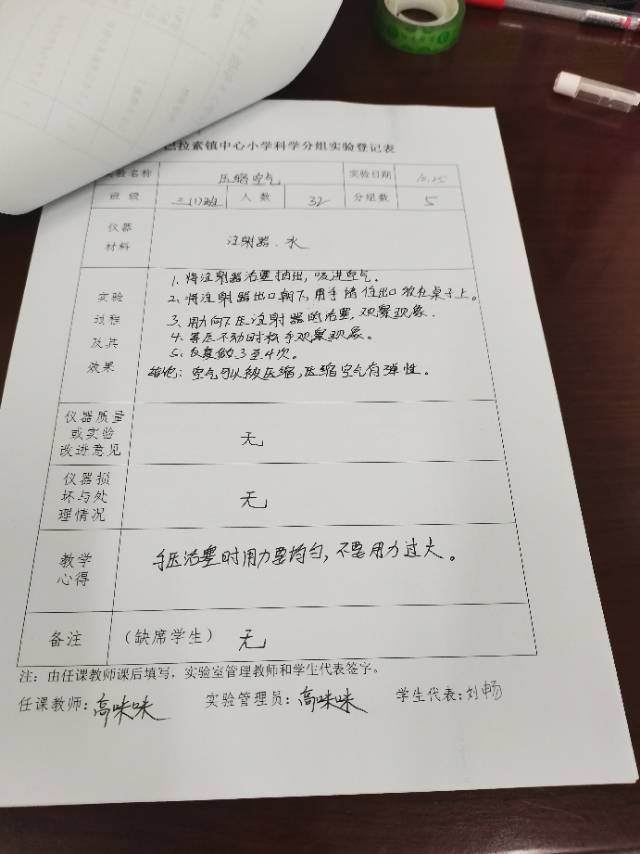 巴拉素镇中心小学科学分组实验登记表
实验名称 压缩空气 实验日期 10.25
班级 三(1)班 人数 32 分组数 5
仪器材料 注射器、水
实验过程及其效果
1、将注射器活塞抽出,吸进空气。
2、将注射器出口朝下,用手堵住出口放在桌子上。
3、用力向下压注射器的活塞,观察现象。
4、等压不动时松手观察现象。
5、反复做3至4次。
结论:空气可以被压缩,压缩空气有弹性。
仪器质量或实验改进意见 无
仪器损坏与处理情况 无
教学心得 手压活塞时用力要均匀,不要用力过大。
备注 (缺席学生) 无
注:由任课教师课后填写,实验室管理教师和学生代表签字。
任课教师:高咪咪 实验管理员:高咪咪 学生代表:刘畅